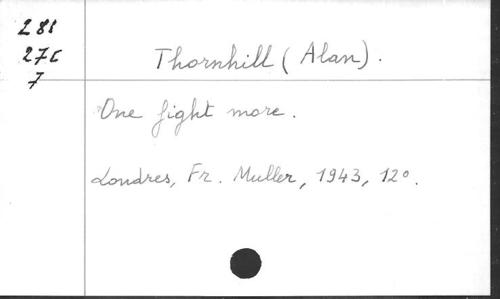 281
27C
7
Thornhill (Alan).
One fight more.
Londres, Fr. Muller, 1943, 12°.